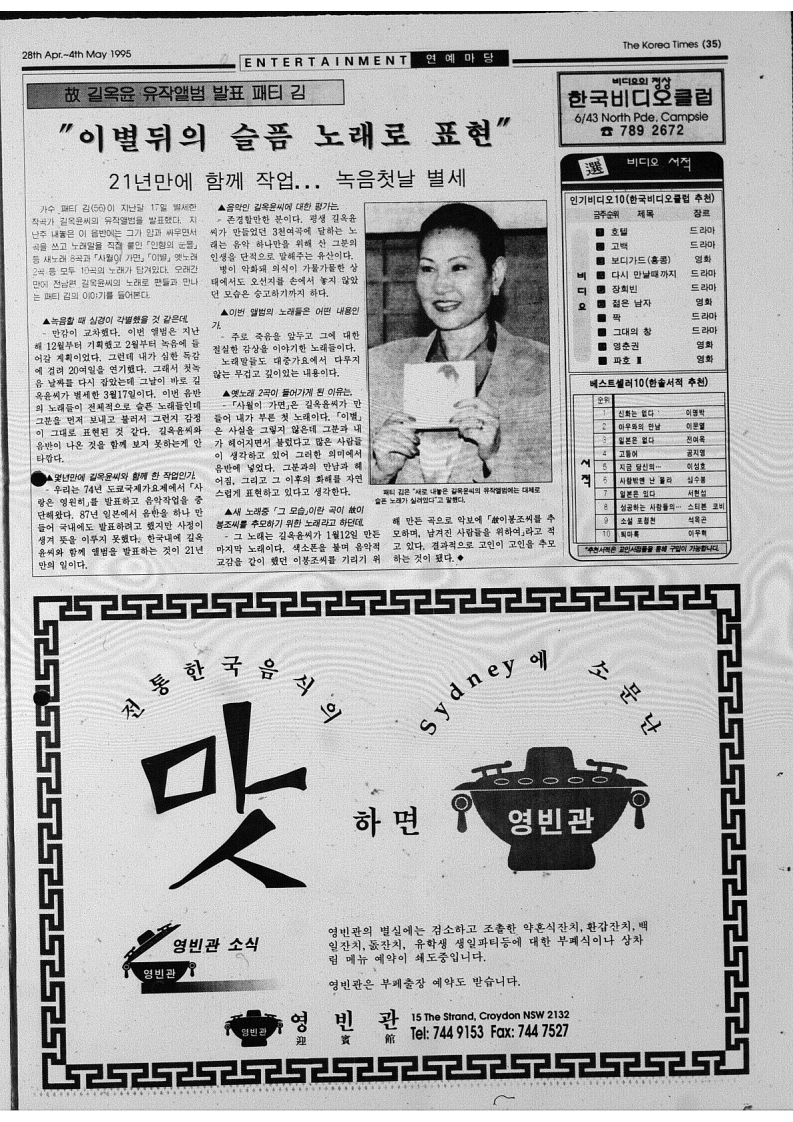 28th Apr.~4th May 1995
ENTERTAINMENT 연예마당
The Korea Times (35)
故 길옥윤 유작앨범 발표 패티 김
"이별뒤의 슬픔 노래로 표현"
21년만에 함께 작업... 녹음첫날 별세
가수 패티 김(56)이 지난달 17일 별세한
작곡가 길옥윤씨의 유작앨범을 발표했다. 지
난주 내놓은 이 음반에는 그가 암과 싸우면서
곡을 쓰고 노래말을 직접 붙인 「인형의 눈물」
등 새노래 8곡과 「사월이 가면」 「이별」 옛노래
2곡 등 모두 10곡의 노래가 담겨있다. 오래간
만에 전남편 길옥윤씨의 노래로 팬들과 만나
는 패티 김의 이야기를 들어본다.
▲녹음할 때 심경이 각별했을 것 같은데.
- 만감이 교차했다. 이번 앨범은 지난
해 12월부터 기획했고 2월부터 녹음에 들
어갈 계획이었다. 그런데 내가 심한 독감
에 걸려 20여일을 연기했다. 그래서 첫녹
음 날짜를 다시 잡았는데 그날이 바로 길
옥윤씨가 별세한 3월17일이다. 이번 음반
의 노래들이 전체적으로 슬픈 노래들인데
그분을 먼저 보내고 불러서 그런지 감정
이 그대로 표현된 것 같다. 길옥윤씨와
음반이 나온 것을 함께 보지 못하는게 안
타깝다.
▲몇년만에 길옥윤씨와 함께 한 작업인가.
- 우리는 74년 도쿄국제가요제에서 「사
랑은 영원히」를 발표하고 음악작업을 중
단해왔다. 87년 일본에서 음반을 하나 만
들어 국내에도 발표하려고 했지만 사정이
생겨 뜻을 이루지 못했다. 한국내에 길옥
윤씨와 함께 앨범을 발표하는 것이 21년
만의 일이다.
▲음악인 길옥윤씨에 대한 평가는.
- 존경할만한 분이다. 평생 길옥윤
씨가 만들었던 3천여곡에 달하는 노
래는 음악 하나만을 위해 산 그분의
인생을 단적으로 말해주는 유산이다.
병이 악화돼 의식이 가물가물한 상
태에서도 오선지를 손에서 놓지 않았
던 모습은 숭고하기까지 하다.
▲이번 앨범의 노래들은 어떤 내용인
가.
- 주로 죽음을 앞두고 그에 대한
절실한 감상을 이야기한 노래들이다.
노래말들도 대중가요에서 다루지
않는 무겁고 깊이있는 내용이다.
▲옛노래 2곡이 들어가게 된 이유는.
- 「사월이 가면」은 길옥윤씨가 만
들어 내가 부른 첫 노래이다. 「이별」
은 사실을 그렇지 않은데 그분과 내
가 헤어지면서 불렀다고 많은 사람들
이 생각하고 있어 그러한 의미에서
음반에 넣었다. 그분과의 만남과 헤
어짐, 그리고 그 이후의 화해를 자연
스럽게 표현하고 있다고 생각한다.
▲새 노래중 「그 모습」이란 곡이 故이
봉조씨를 추모하기 위한 노래라고 하던데.
- 그 노래는 길옥윤씨가 1월12일 만든
마지막 노래이다. 색소폰을 불며 음악적
교감을 같이 했던 이봉조씨를 기리기 위
패티 김은 "새로 내놓은 길옥윤씨의 유작앨범에는 대체로
슬픈 노래가 실려있다"고 말했다.
해 만든 곡으로 악보에 「故이봉조씨를 추
모하며, 남겨진 사람들을 위하여」라고 적
고 있다. 결과적으로 고인이 고인을 추모
하는 것이 됐다.◆
비디오의 정상
한국비디오클럽
6/43 North Pde, Campsie
☎ 789 2672
選 비디오 서적
인기비디오10(한국비디오클럽 추천)
금주순위 제목 장르
비디오
호텔 드라마
고백 드라마
보디가드(홍콩) 영화
다시 만날때까지 드라마
장희빈 드라마
젊은 남자 영화
짝 드라마
그대의 창 드라마
영춘권 영화
파호 Ⅱ 영화
베스트셀러10(한솔서적 추천)
순위
서적
1 신화는 없다 이명박
2 아우와의 만남 이문열
3 일본은 없다 전여옥
4 고등어 공지영
5 지금 당신의… 이상호
6 사랑밖엔 난 몰라 심수봉
7 일본은 있다 서현섭
8 성공하는 사람들의… 스티븐 코비
9 소설 포청천 석옥곤
10 퇴마록 이우혁
*추천서적은 교민서점들을 통해 구입이 가능합니다.
전통한국음식의
맛
하면
Sydney에 소문난
영빈관
영빈관 소식
영빈관
영빈관의 별실에는 검소하고 조촐한 약혼식잔치, 환갑잔치, 백
일잔치, 돐잔치, 유학생 생일파티등에 대한 부페식이나 상차
림 메뉴 예약이 쇄도중입니다.
영빈관은 부페출장 예약도 받습니다.
영빈관
영 빈 관
迎 賓 館
15 The Strand, Croydon NSW 2132
Tel: 744 9153 Fax: 744 7527